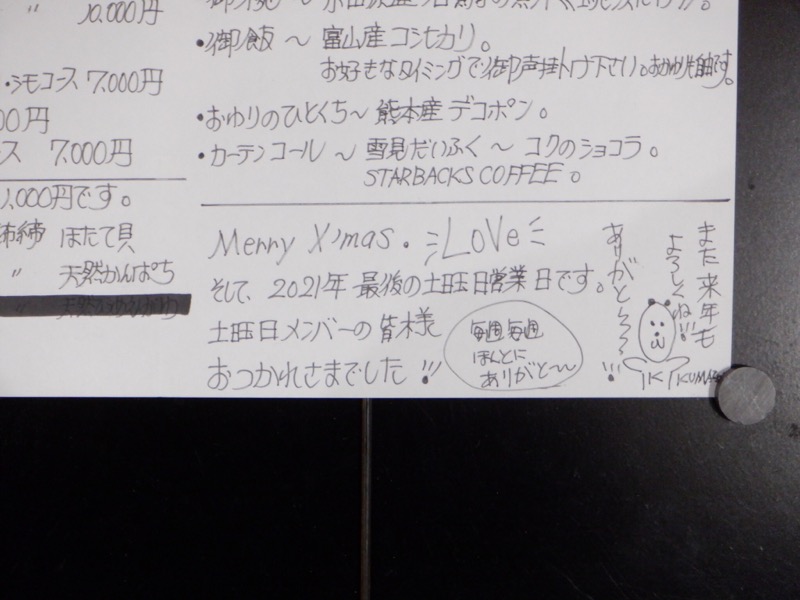 〃 10,000円
・シモコース 7,000円
00円
ス 7,000円
1,000円です。
布締 ほたて貝
〃 天然かんぱち
・御飯 〜 富山産コシヒカリ。
お好きなタイミングで御声掛け下さい。おかわり自由です。
・おゆりのひとくち〜 熊本産 デコポン。
・カーテンコール 〜 雪見だいふく 〜 コクのショコラ。
STARBACKS COFFEE。
Merry X'mas. LoVe
そして、2021年 最後の土曜日営業日です。
土曜日メンバーの皆木様
おつかれさまでした!!!
毎週毎週
ほんとに
ありがと〜〜
ありがとう〜〜!!
また来年も
よろしくね!!!
KUMA